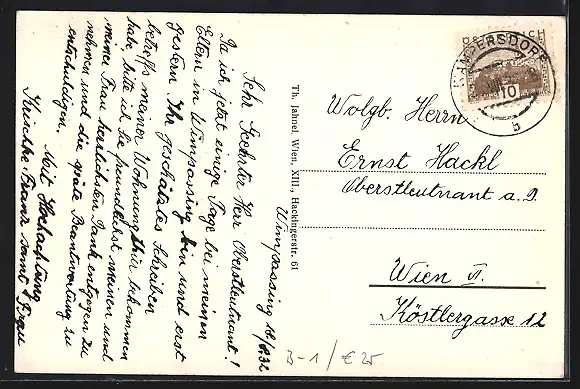 Wimpassing 16/8.32
Sehr Geehrter Herr Oberstleutnant!
Da ich jetzt einige Tage bei meinen
Eltern in Wimpassing bin und erst
gestern Ihr geschätztes Schreiben
betreffs meiner Wohnungstür bekommen
habe, bitte ich Sie freundlichst meinen und
meiner Frau herzlichsten Dank entgegen zu
nehmen und die späte Beantwortung zu
entschuldigen,
Mit Hochachtung
Franz samt Frau
Th. Jahnel Wien, XIII., Hackingerstr. 61
ÖSTERREICH
10
b
Wolgb. Herrn
Ernst Hackl
Oberstleutnant a. D.
Wien VI.
Köstlergasse 12
B-1/€25